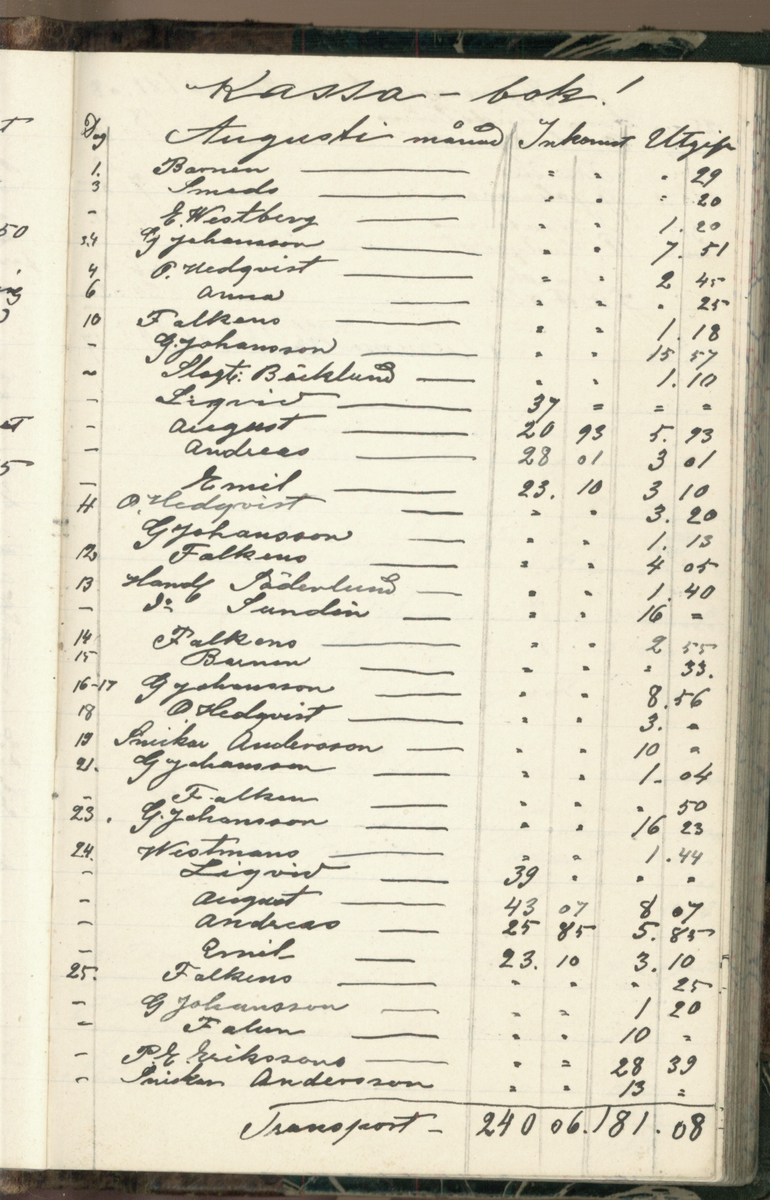 Kassa-bok!
Dag Augusti månad Inkomst Utgift
1. Barnen " " " 29
3 Smeds " " " 20
- E. Westberg " " 1. 20
3.4 G Johansson " " 7. 51
4 P. Hedqvist " " 2 45
6 Anna " " " 25
10 Falkens " " 1. 18
- G. Johansson " " 15 57
- Slagt: Bäcklund " " 1. 10
- Liqvid 37 = = =
- August 20 93 5. 93
- Andreas 28 01 3 01
- Emil 23. 10 3 10
11 O. Hedqvist " " 3. 20
G Johansson " " 1. 13
12 Falkens " " 4 05
13 Handl Söderlund " " 1. 40
- Do Sundin " " 16 =
14 Falkens " " 2 55
15 Barnen " " " 33.
16-17 G Johansson " " 8. 56
18 O Hedqvist " " 3. "
19 Snickar Andersson " " 10 "
21. G Johansson " " 1- 04
- Falken " " " 50
23. G. Johansson " " 16 23
24. Westmans " " 1. 44
- Liqvid 39 " " "
- August 43 07 8 07
- Andreas 25 85 5. 85
- Emil 23. 10 3. 10
25. Falkens " " " 25
- G Johansson " " 1 20
- Falun " " 10 "
- P. E. Erikssons " = 28 39
- Snickar Andersson " " 13 =
Transport- 240 06. 181. 08
50
5